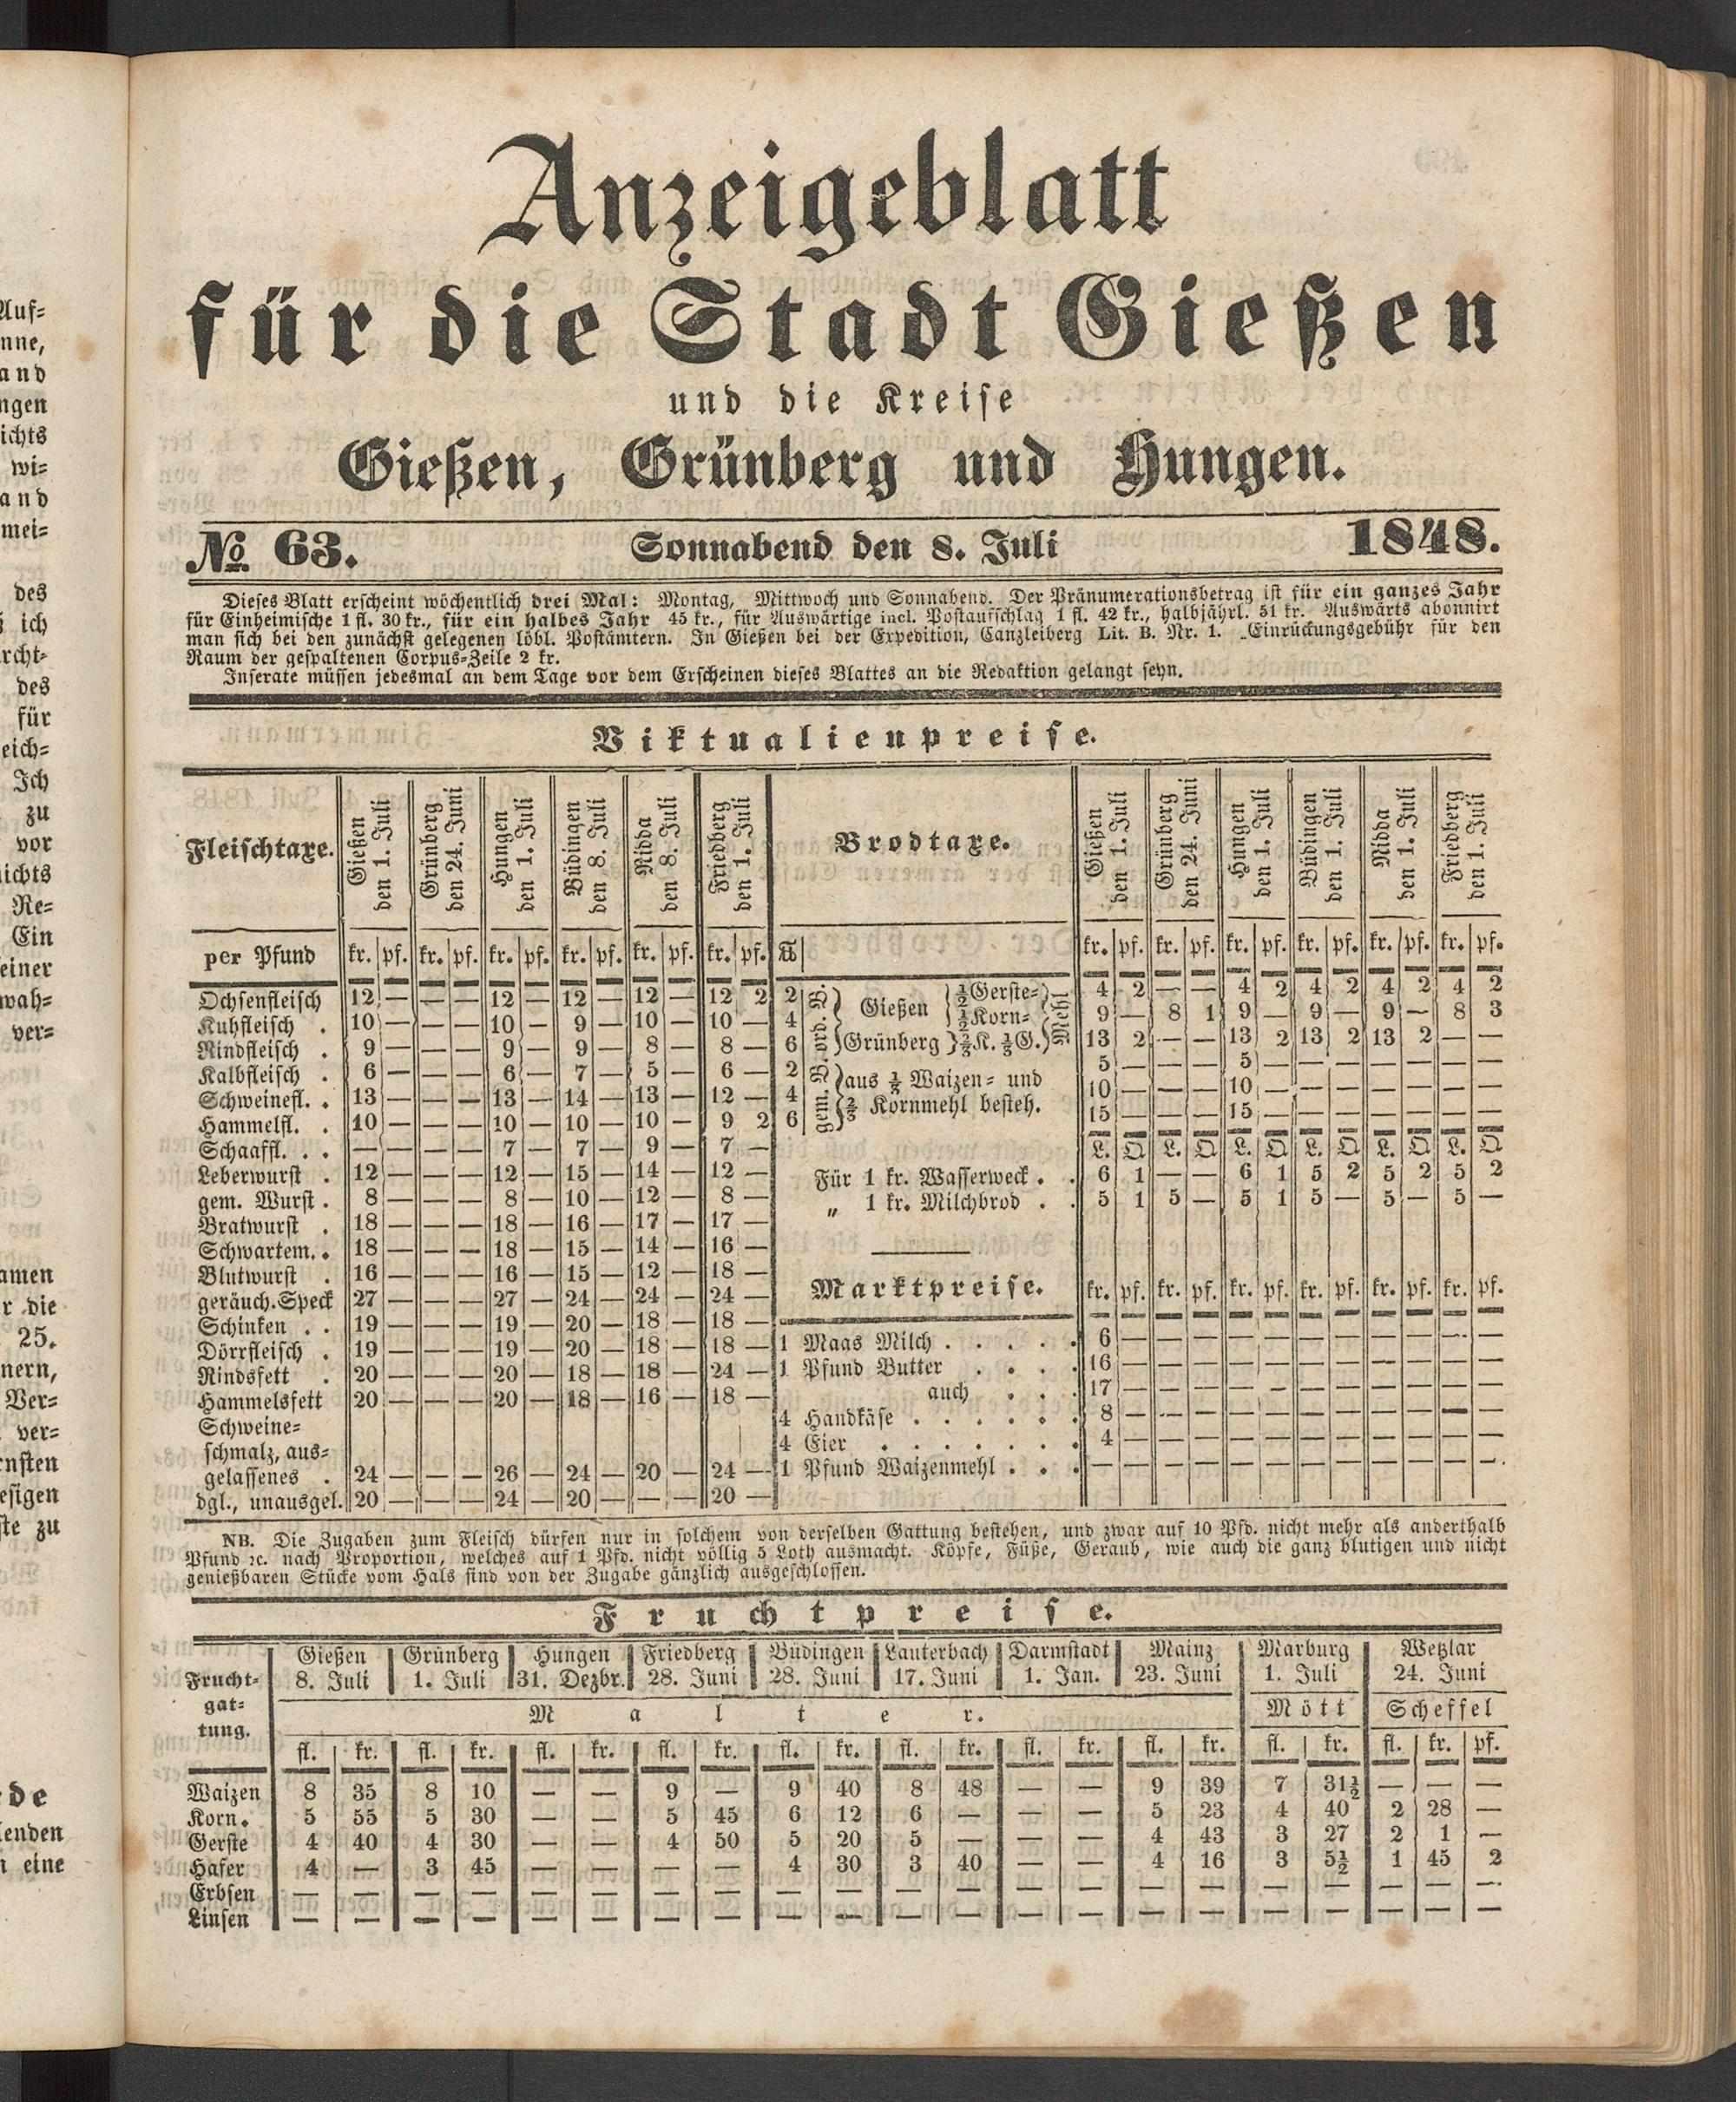 Auf=
nne,
and
ngen
ichts
wi=
and
mei=
des
ich
rcht=
des
für
eich=
Ich
zu
vor
ichts
Re=
Ein
einer
wah=
ver=
amen
r die
25.
nern,
Ver=
ver=
rnsten
esigen
ste zu
de
lenden
n eine
Anzeigeblatt
für die Stadt Gießen
und die Kreise
Gießen, Grünberg und Hungen.
№ 63. Sonnabend den 8. Juli 1848.
Dieses Blatt erscheint wöchentlich drei Mal: Montag, Mittwoch und Sonnabend. Der Pränumerationsbetrag ist für ein ganzes Jahr
für Einheimische 1 fl. 30 kr., für ein halbes Jahr 45 kr., für Auswärtige incl. Postaufschlag 1 fl. 42 kr., halbjährl. 51 kr. Auswärts abonnirt
man sich bei den zunächst gelegenen löbl. Postämtern. In Gießen bei der Expedition, Canzleiberg Lit. B. Nr. 1. Einrückungsgebühr für den
Raum der gespaltenen Corpus=Zeile 2 kr.
Inserate müssen jedesmal an dem Tage vor dem Erscheinen dieses Blattes an die Redaktion gelangt seyn.
Viktualienpreise.
Fleischtaxe. Gießen den 1. Juli Grünberg den 24. Juni Hungen den 1. Juli Büdingen den 8. Juli Nidda den 8. Juli Friedberg den 1. Juli
per Pfund kr. pf. kr. pf. kr. pf. kr. pf. kr. pf. kr. pf.
Ochsenfleisch 12 — — — 12 — 12 — 12 — 12 2
Kuhfleisch . 10 — — — 10 — 9 — 10 — 10 —
Rindfleisch . 9 — — — 9 — 9 — 8 — 8 —
Kalbfleisch . 6 — — — 6 — 7 — 5 — 6 —
Schweinefl. . 13 — — — 13 — 14 — 13 — 12 —
Hammelfl. . 10 — — — 10 — 10 — 10 — 9 2
Schaaffl. . . — — — — 7 — 7 — 9 — 7 —
Leberwurst . 12 — — — 12 — 15 — 14 — 12 —
gem. Wurst . 8 — — — 8 — 10 — 12 — 8 —
Bratwurst . 18 — — — 18 — 16 — 17 — 17 —
Schwartem. . 18 — — — 18 — 15 — 14 — 16 —
Blutwurst . 16 — — — 16 — 15 — 12 — 18 —
geräuch. Speck 27 — — — 27 — 24 — 24 — 24 —
Schinken . . 19 — — — 19 — 20 — 18 — 18 —
Dörrfleisch . 19 — — — 19 — 20 — 18 — 18 —
Rindsfett . 20 — — — 20 — 18 — 18 — 24 —
Hammelsfett 20 — — — 20 — 18 — 16 — 18 —
Schweine=
schmalz, aus=
gelassenes . 24 — — — 26 — 24 — 20 — 24 —
dgl., unausgel. 20 — — — 24 — 20 — — — 20 —
Brodtaxe. Gießen den 1. Juli Grünberg den 24. Juni Hungen den 1. Juli Büdingen den 1. Juli Nidda den 1. Juli Friedberg den 1. Juli
℔ kr. pf. kr. pf. kr. pf. kr. pf. kr. pf. kr. pf.
ord. B. Gießen ½ Gerste= ½ Korn= Mehl
Grünberg ⅔ K. ⅓ G.
2 4 2 — — 4 2 4 2 4 2 4 2
4 9 — 8 1 9 — 9 — 9 — 8 3
6 13 2 — — 13 2 13 2 13 2 — —
gem. B. aus ⅓ Waizen= und
⅔ Kornmehl besteh.
2 5 — — — 5 — — — — — — —
4 10 — — — 10 — — — — — — —
6 15 — — — 15 — — — — — — —
L. Q L. Q L. Q L. Q L. Q L. Q
Für 1 kr. Wasserweck . . 6 1 — — 6 1 5 2 5 2 5 2
„ 1 kr. Milchbrod . . 5 1 5 — 5 1 5 — 5 — 5 —
Marktpreise. kr. pf. kr. pf. kr. pf. kr. pf. kr. pf. kr. pf.
1 Maas Milch . . . . . 6 — — — — — — — — — — —
1 Pfund Butter . . . . 16 — — — — — — — — — — —
auch . . . 17 — — — — — — — — — — —
4 Handkäse . . . . . . 8 — — — — — — — — — — —
4 Eier . . . . . . . 4 — — — — — — — — — — —
1 Pfund Waizenmehl . . . — — — — — — — — — — — —
NB. Die Zugaben zum Fleisch dürfen nur in solchem von derselben Gattung bestehen, und zwar auf 10 Pfd. nicht mehr als anderthalb
Pfund ꝛc. nach Proportion, welches auf 1 Pfd. nicht völlig 5 Loth ausmacht. Köpfe, Füße, Geraub, wie auch die ganz blutigen und nicht
genießbaren Stücke vom Hals sind von der Zugabe gänzlich ausgeschlossen.
Fruchtpreise.
Frucht=
gat=
tung.
Gießen Grünberg Hungen Friedberg Büdingen Lauterbach Darmstadt Mainz Marburg Wetzlar
8. Juli 1. Juli 31. Dezbr. 28. Juni 28. Juni 17. Juni 1. Jan. 23. Juni 1. Juli 24. Juni
Malter. Mött Scheffel
fl. kr. fl. kr. fl. kr. fl. kr. fl. kr. fl. kr. fl. kr. fl. kr. fl. kr. fl. kr. pf.
Waizen 8 35 8 10 — — 9 — 9 40 8 48 — — 9 39 7 31½ — — —
Korn. 5 55 5 30 — — 5 45 6 12 6 — — — 5 23 4 40 2 28 —
Gerste 4 40 4 30 — — 4 50 5 20 5 — — — 4 43 3 27 2 1 —
Hafer 4 — 3 45 — — — — 4 30 3 40 — — 4 16 3 5½ 1 45 2
Erbsen — — — — — — — — — — — — — — — — — — — — —
Linsen — — — — — — — — — — — — — — — — — — — — —